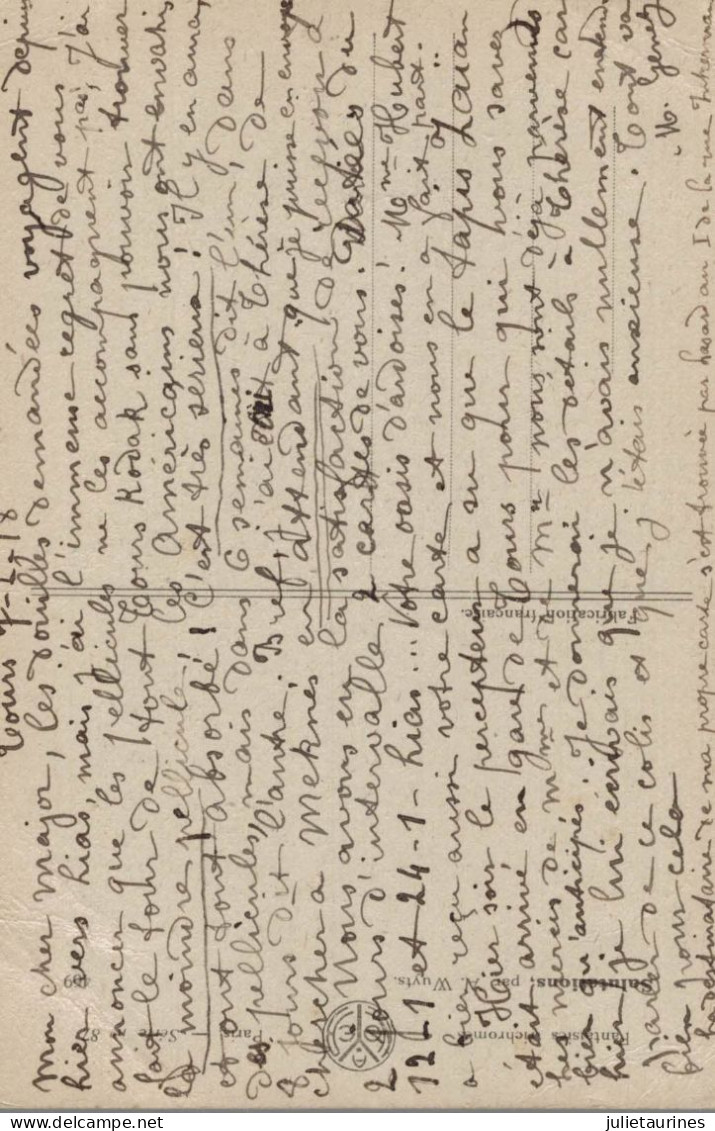 Tours 7-2-18
Mon cher Major, les douilles demandées voyagent depuis
hier vers hias, mais j'ai l'immense regret de vous
annoncer que les pellicules ne les accompagnent pas, j'ai
fait le tour de tout Tours Kodak sans pouvoir trouver
la moindre pellicule ! les Américains nous ont envahis
et ont tout absorbé ! C'est très sérieux ! Il y en aura,
des pellicules, mais dans 6 semaines dit l'un, dans
8 jours dit l'autre. Bref, j'ai écrit à Thérèse de
chercher à Meknès en attendant que je puisse en envoyer
Nous avons eu la satisfaction de recevoir à
2 jours d'intervalle 2 cartes de vous. Datées du
12-1 et 24-1- hias... Votre oasis d'ardoises ! Mme Hubert
a bien reçu aussi votre carte et nous en a fait part.
Hier soir le percepteur a su que le tapis Zaïan
était arrivé en gare de Tours pour qui vous savez
les mercis de Mme et de Mr nous sont déjà parvenus
bien qu'anticipés ! Je donnerai les détails à Thérèse car
hier je lui écrivais que je n'avais nullement entendu
parler de ce colis et que j'étais anxieuse. Tout va
bien pour cela
M. Genet
la destinataire de ma propre carte s'est trouvée par hasard au 1 de la rue
Fabrication française.
Fantaisies Trichromes
Paris. — Série 87
Salutations, par A. Wuyts.
499
julietaurines